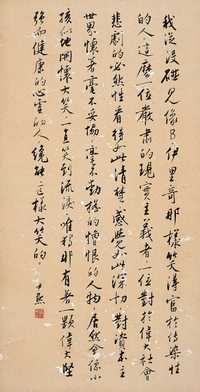 我從沒碰見像B伊里哥那樣笑得富於傳染性
的人這麼一位嚴肅的現實主義者一位對於偉大社會
悲劇的必然性看得如此清楚感覺如此深切對資本主
世界懷著毫不妥協毫不動搖的憎恨的人物居然會像小
孩似地開懷大笑一直笑到流淚唯獨那有着一顆偉大堅
強而健康的心靈的人纔能這樣大笑的